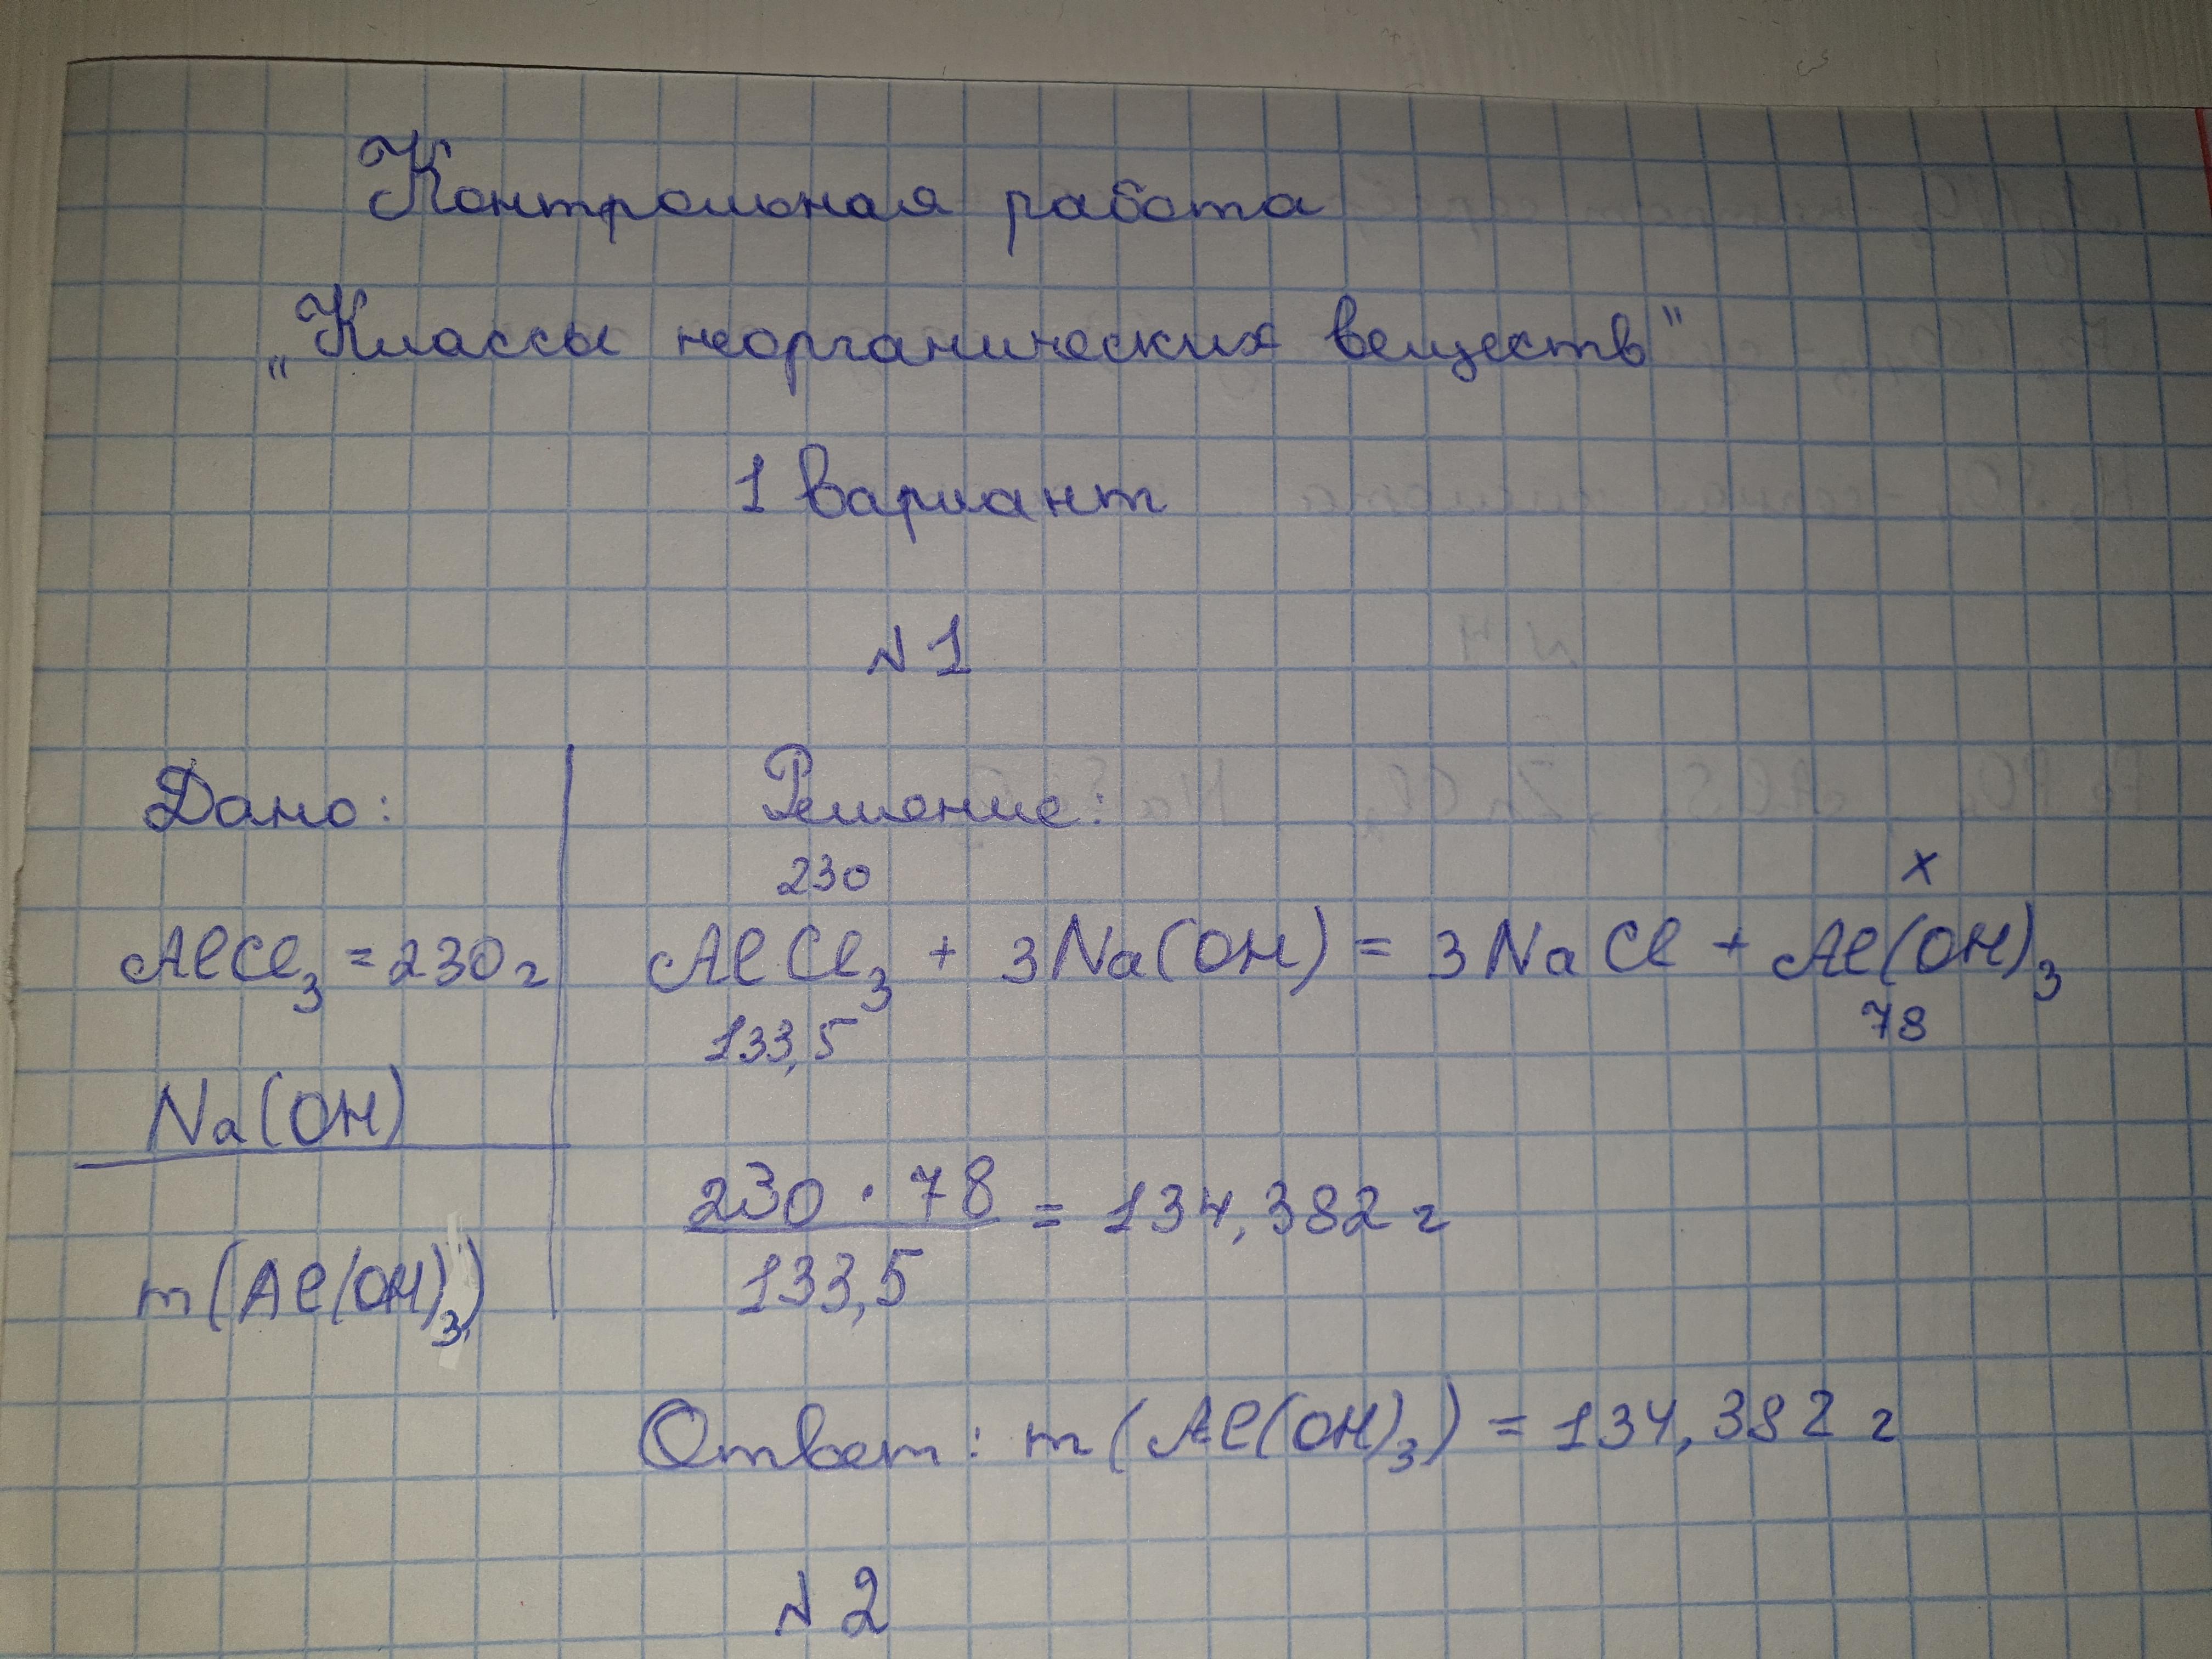 Контрольная работа
„Классы неорганических веществ"
1 вариант
№1
Дано:
AlCl₃ = 230 г
Na(OH)
m(Al(OH)₃)
Решение:
230 x
AlCl₃ + 3Na(OH) = 3NaCl + Al(OH)₃
133,5 78
230 · 78 = 134,382 г
133,5
Ответ: m(Al(OH)₃) = 134,382 г
№2